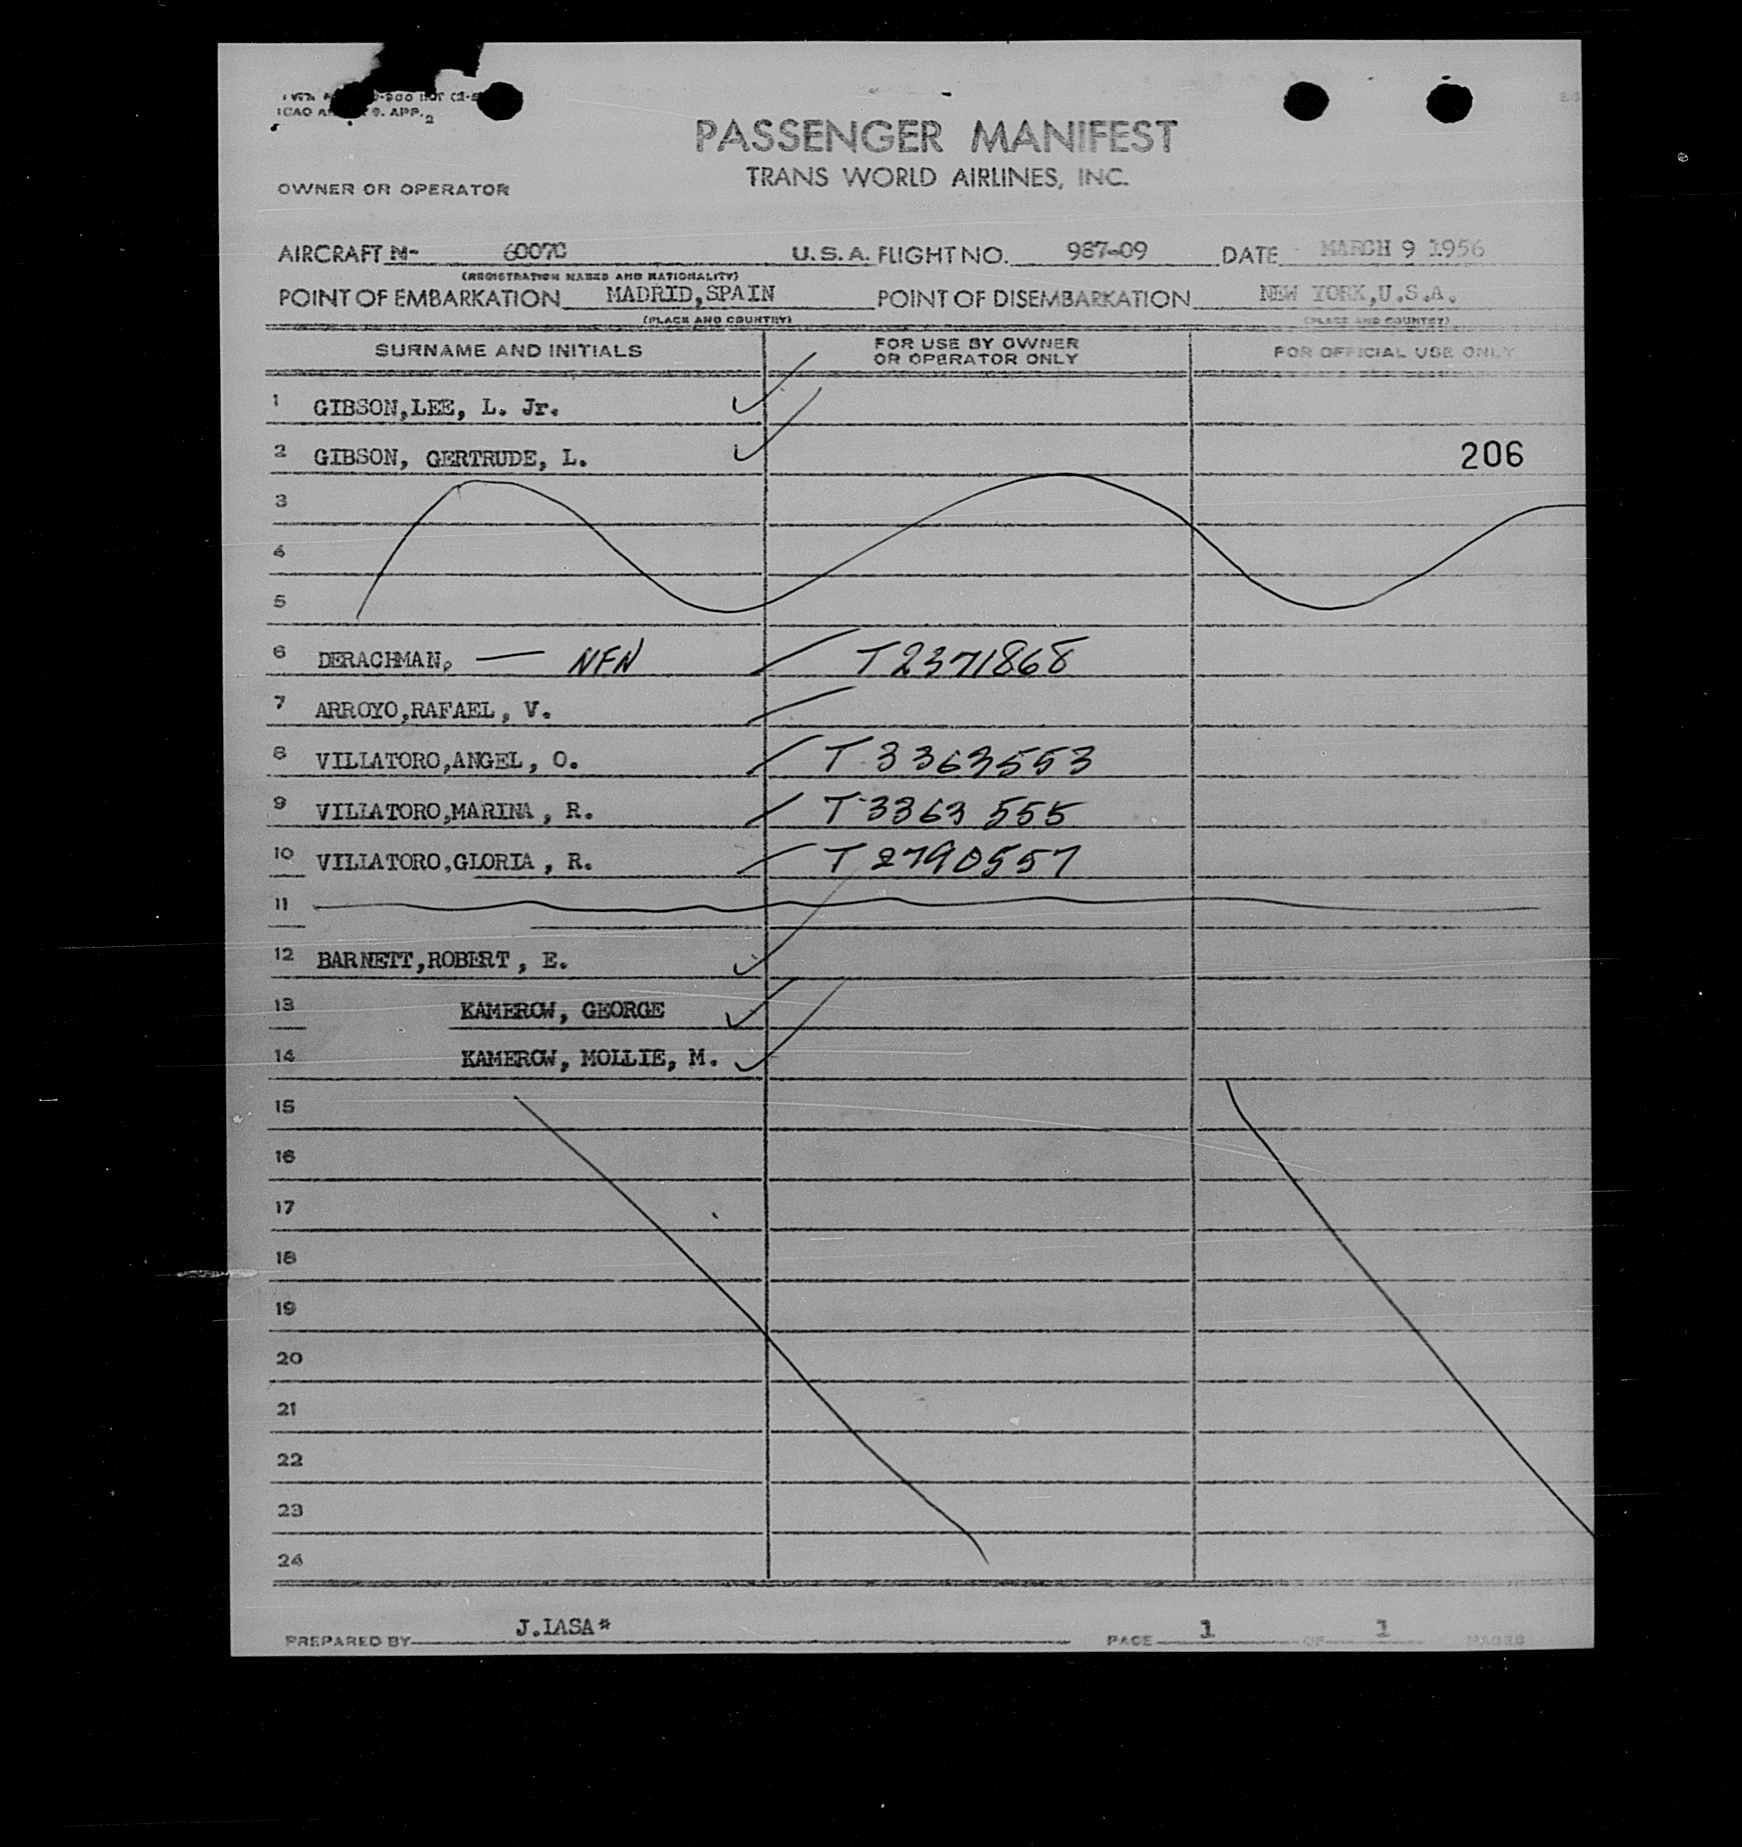 ICAO
9. APP. 2
PASSENGER MANIFEST
TRANS WORLD AIRLINES, INC.
OWNER OR OPERATOR
AIRCRAFT N- 6007C U.S.A. FLIGHT NO. 987-09 DATE MARCH 9 1956
(REGISTRATION MARKS AND NATIONALITY)
POINT OF EMBARKATION MADRID,SPAIN POINT OF DISEMBARKATION NEW YORK,U.S.A.
(PLACE AND COUNTRY) (PLACE AND COUNTRY)
SURNAME AND INITIALS FOR USE BY OWNER OR OPERATOR ONLY FOR OFFICIAL USE ONLY
1 GIBSON,LEE, L. Jr.
2 GIBSON, GERTRUDE, L. 206
3
4
5
6 DERACHMAN, — NFN T2371868
7 ARROYO,RAFAEL, V.
8 VILLATORO,ANGEL, O. T 3363553
9 VILLATORO,MARINA, R. T 3363 555
10 VILLATORO,GLORIA, R. T 2790557
11
12 BARNETT,ROBERT, E.
13 KAMEROW, GEORGE
14 KAMEROW, MOLLIE, M.
15
16
17
18
19
20
21
22
23
24
PREPARED BY J.IASA* PAGE 1 OF 1 PAGES